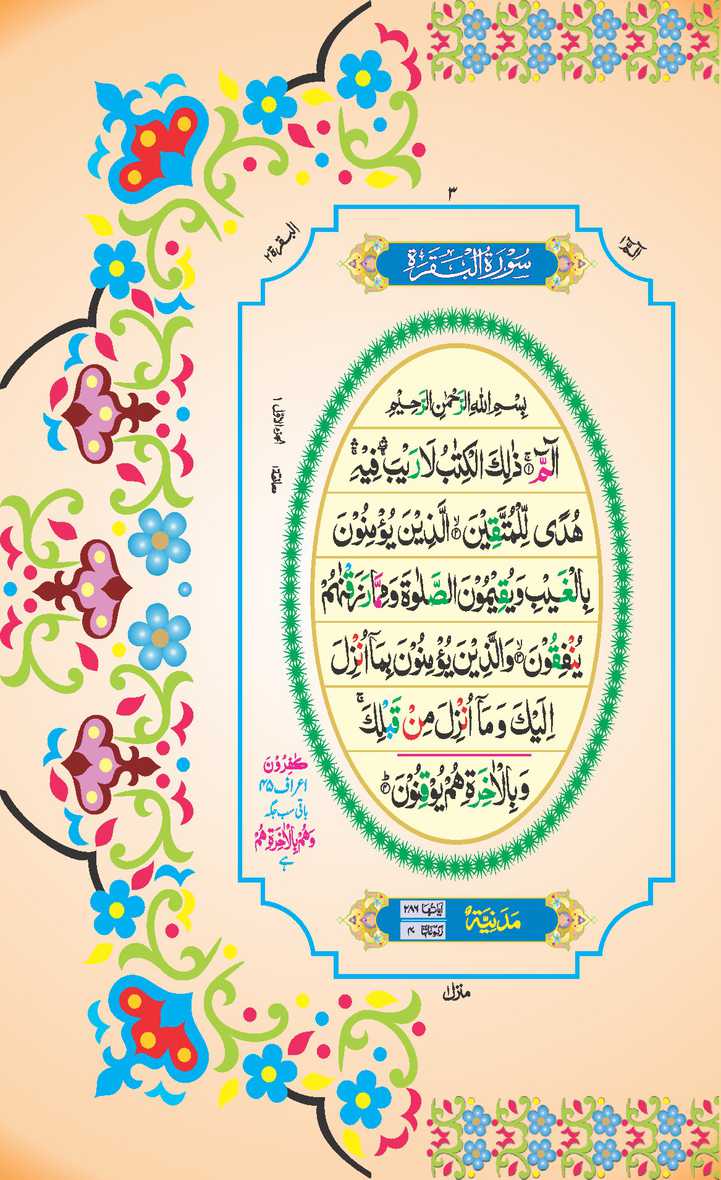 ٣
الٓمّٓ ١
البقرة ٢
سُوْرَةُ الْبَقَرَةِ
بِسْمِ اللّٰهِ الرَّحْمٰنِ الرَّحِيْمِ
الٓمّٓ ۚ﴿١﴾ ذٰلِكَ الْكِتٰبُ لَا رَيْبَ ۛۚ فِيْهِ ۛۚ
هُدًى لِّلْمُتَّقِيْنَ ۙ﴿٢﴾ الَّذِيْنَ يُؤْمِنُوْنَ
بِالْغَيْبِ وَيُقِيْمُوْنَ الصَّلٰوةَ وَمِمَّا رَزَقْنٰهُمْ
يُنْفِقُوْنَ ۙ﴿٣﴾ وَالَّذِيْنَ يُؤْمِنُوْنَ بِمَآ اُنْزِلَ
اِلَيْكَ وَمَآ اُنْزِلَ مِنْ قَبْلِكَ ۚ
وَبِالْاٰخِرَةِ هُمْ يُوْقِنُوْنَ ؕ﴿٤﴾
الجزء الاول ١
معانقة ١
كٰفِرُوْنَ
اعراف ۴۵
باقی سب جگہ
وَهُمْ بِالْاٰخِرَةِ هُمْ
ہے
مَدَنِيَّةٌ
اٰيَاتُهَا ٢٨٦
رُكُوْعَاتُهَا ٤٠
منزل ١